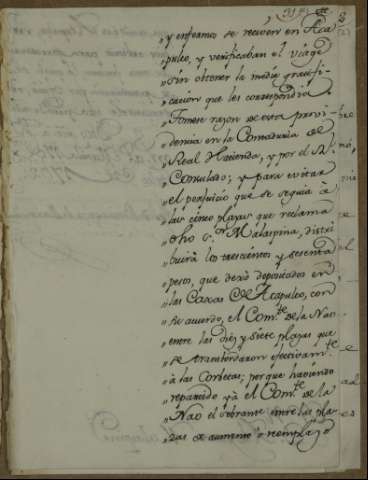 „ y enfermo se recivere en Aca
„ pulco, y verificaban el viage
„ sin obtener la media gratifi
„ cacion que les correspondió.
„ Tomese razon de esta provi
„ dencia en la Contaduria de
„ Real Hacienda, y por el Rl.
„ Consulado; y para evitar
„ el perjuicio que se seguia à
„ las cinco plazas que reclama
„ dho Sor. Malaspina, distri
„ buirá los trescientos y sesenta
„ pesos, que dexó depositados en
„ las Caxas de Acapulco, con
„ su acuerdo, el Comte. de la Nao
„ entre las diez y siete plazas que
„ se transbordaron efectivamte.
„ à las Corbetas; porque haviendo
„ repartido ya el Comte. de la
„ Nao el sobrante entre las pla
„ zas de aumento ò reemplazo